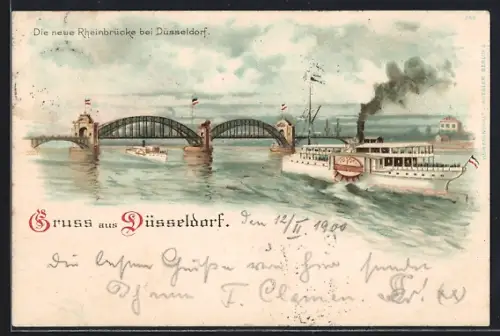 Die neue Rheinbrücke bei Düsseldorf.
Gruss aus Düsseldorf. den 12/II 1900
Die besten Grüße von hier sendet
Ihnen F.